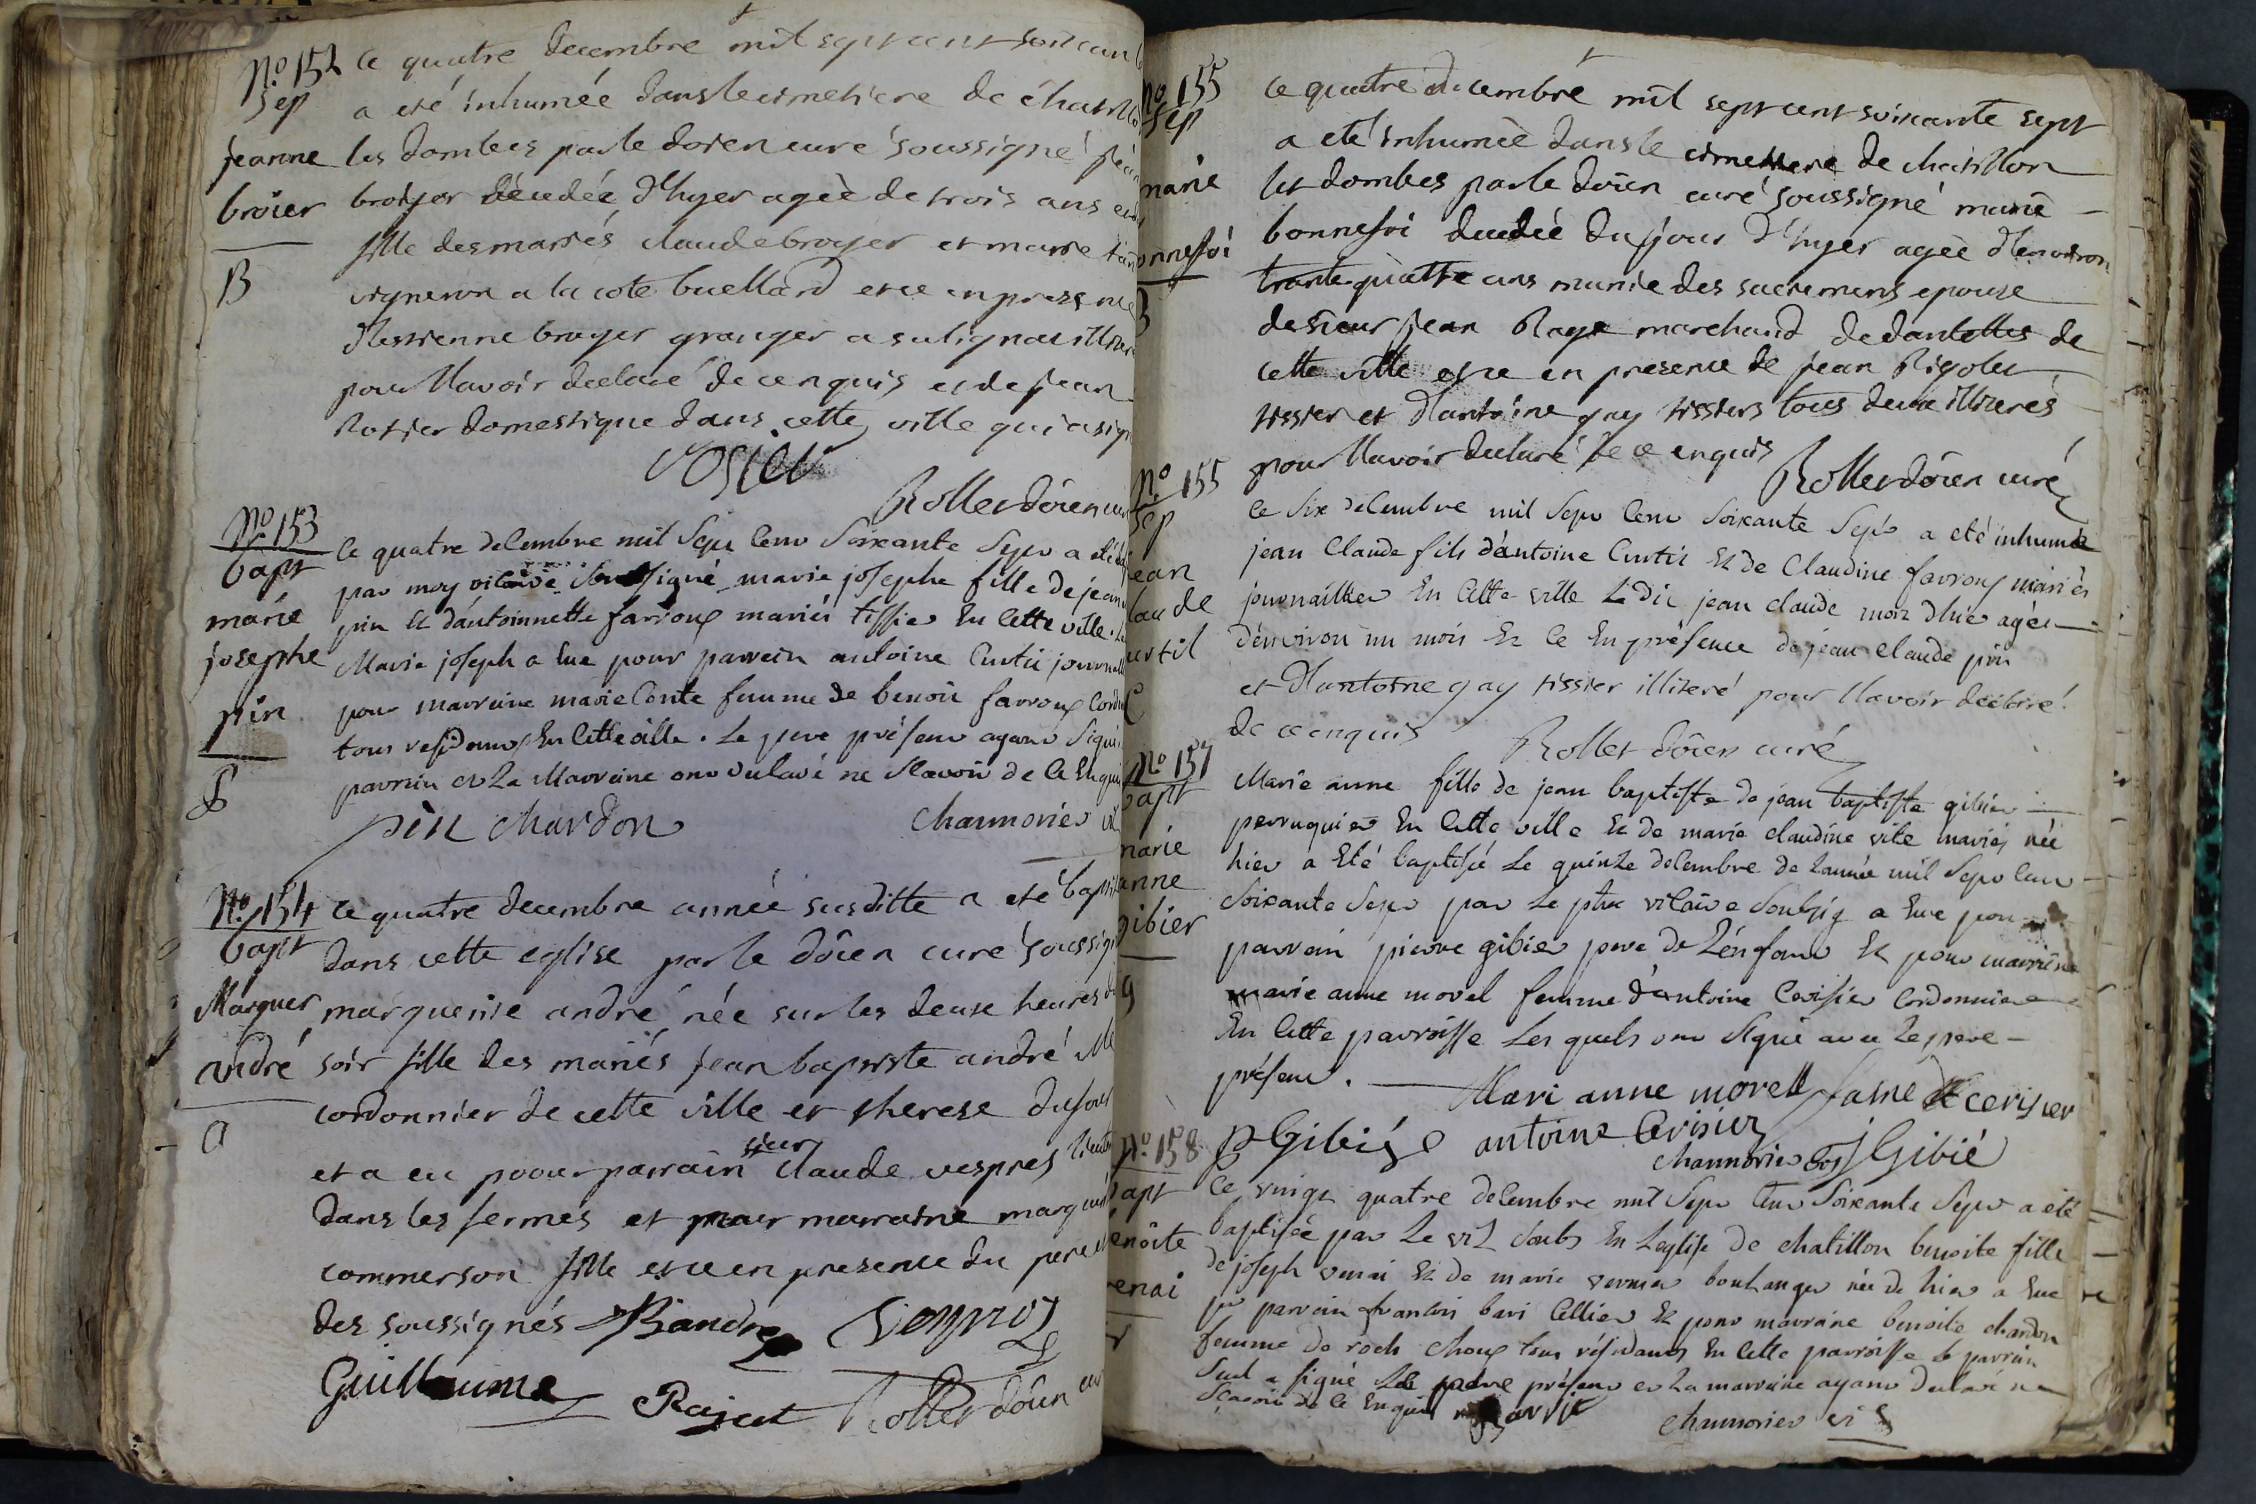 No 152
Sep
jeanne
broïer
B
Ce quatre decembre mil sept cent soixan
a eté inhumée dans le cimetiere de chatillo
les dombes par le doïen curé soussigné jean
broïyer décedée d'hyer agèe de trois ans et
fille des mariés claude broyer et marie
vigneron a la cote buellard et ce en presence
d'estienne broyer granger a sulignat illiter
pour l'lavoir declaré de ce enquis et de jean
Rosier domestique dans cette ville qui a sig
rosier
Rollet doïen curé
No 153
bapt
marie
josephe
pin
P
Ce quatre decembre mil Sept Cent Soixante Sept a eté
par moy vicaire Soussigné marie josephe fille de jean
pin Et d'antoinnette farroux mariés tissier En Cette ville. La
Marie joseph a Eue pour parrein antoine Curtil journall
pour marreine marie Conte femme de benoit farroux Cordo
tous residents En Cette ville. Le pere présent ayant Signé
parrein et La Marreine ont declaré ne Scavoir de Ce Enquis
pin chardon
Channorier vic
No 154
bapt
Marguer
andré
a
Ce quatre decembre année susditte a eté bapti
dans cette eglise par le doïen curé soussign
marguerite andré née sur les deux heures du
soir fille des mariés jean baptiste andré M
cordonnier de cette ville et therese dufour
et a eu poour parrain sieur claude vespres
dans les fermes et pour marraine marguer
commerson fille et ce en presence du pere et
des soussignés JBandré Vespres
Guillaume Rajat Rollet doïen cur
No 155
Sep
marie
onnefoi
B
Ce quatre decembre mil sept cent soixante sept
a eté inhumèe dans le cimetiere de chatillon
les dombes par le doïen curé soussigné marie
bonnefoi decedée du jour d'hyer agèe d'environ
trante quattre ans munie des sacremens epouse
de sieur jean Raye marchand de dantelles de
cette ville et ce en presence de jean Rigolet
tissier et d'antoine gay tissiers tous deux illiterés
pour l'lavoir declaré de ce enquis
Rollet doïen curé
No 155
Sep
jean
laude
urtil
C
Ce Six decembre mil Sept Cent Soixante Sept a eté inhumé
jean Claude fils d'antoine Curtil Et de Claudine farroux mariés
journaillier En Cette ville Ledit jean claude mort d'hier agée
d'environ un mois Et Ce En présence de jean claude pin
et d'lantoine gay tissier illiteré pour l'lavoir declaré
de ce enquis Rollet doïen curé
No 157
bapt
marie
anne
gibier
g
Marie anne fille de jean baptiste de jean baptiste gibier
perruquier En Cette ville Et de marie claudine vite mariés née
hier a Eté baptisé Le quinze decembre de L'année mil Sept Cent
Soixante Sept par Le pltre vicaire Soubsig a Eue pour
parrein pierre gibier pere de L'enfant Et pour marreine
marie anne morel femme d'antoine Cerisier Cordonnier
En Cette parroisse Les quels ont Signé avec Le pere
présent.
Mari anne morell fame de cerisier
P Gibié antoine Cerisier
Channorier vic J Gibié
No 158
bapt
enoite
enai
Ce vingt quatre decembre mil Sept Cent Soixante Sept a eté
baptisée par Le vic Soubs En L'eglise de chatillon benoite fille
de joseph venai Et de marie vernier boulanger née de hier a Eue
pr parrein francois bari Cellier Et pour marreine benoite chardon
femme de roch choux tous résidants En Cette parroisse Le parrein
Seul a signé Le pere présent et La marreine ayant declaré ne
Scavoir de Ce Enquis
Channorier vic